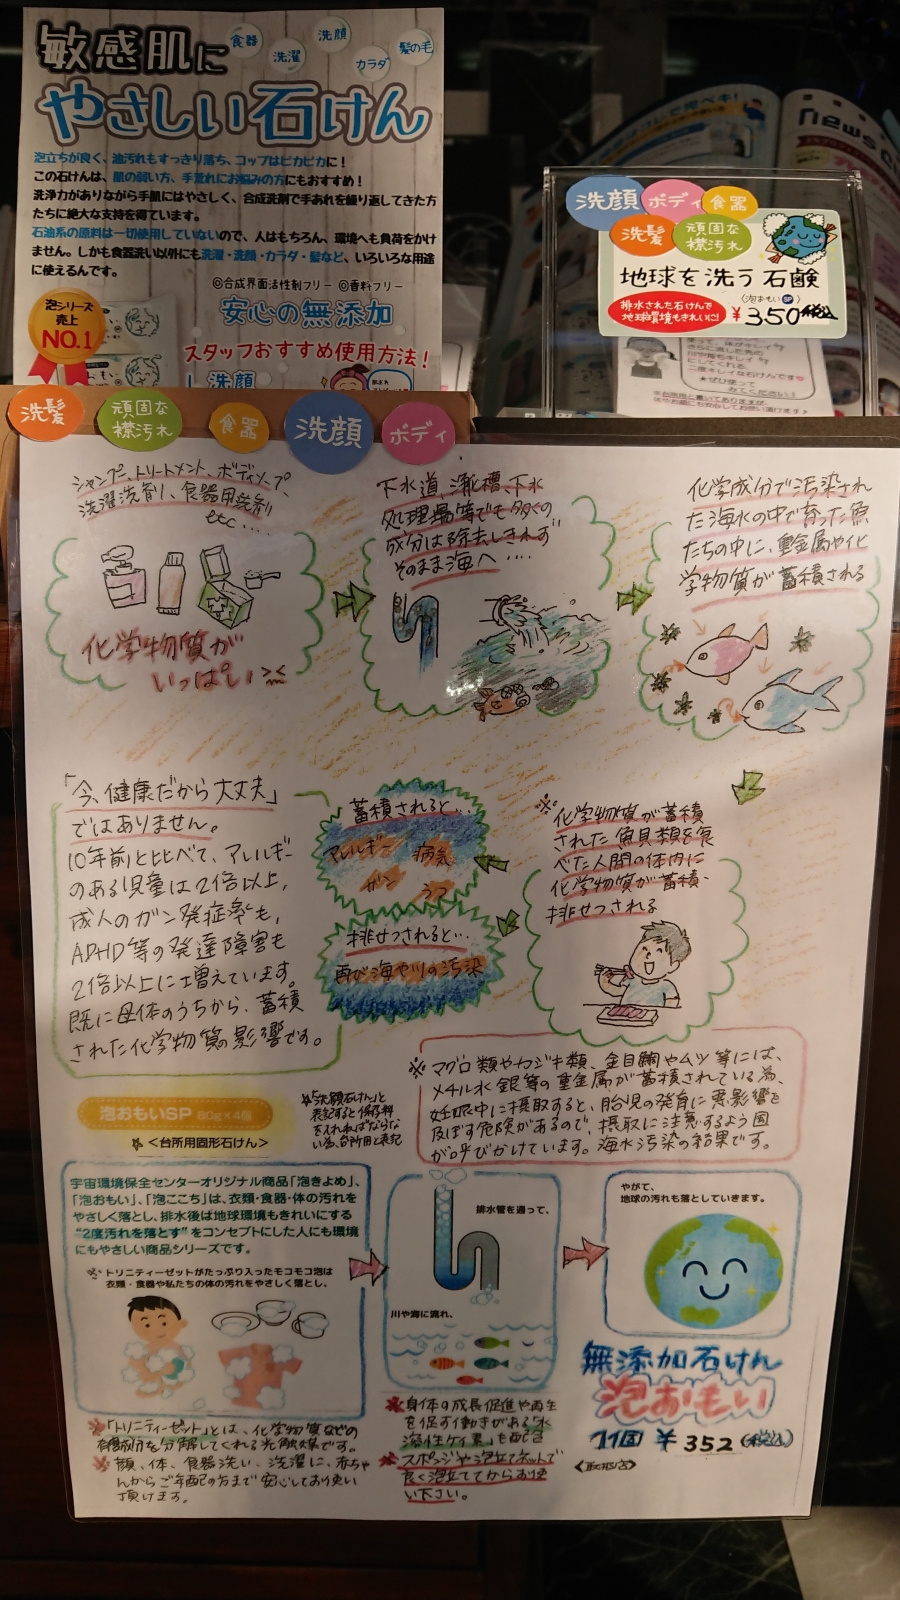 敏感肌に
食器
洗濯
洗顔
カラダ
髪の毛
やさしい石けん
泡立ちが良く、油汚れもすっきり落ち、コップはピカピカに！
この石けんは、肌の弱い方、手荒れにお悩みの方にもおすすめ！
洗浄力がありながら手肌にはやさしく、合成洗剤で手あれを繰り返してきた方
たちに絶大な支持を得ています。
石油系の原料は一切使用していないので、人はもちろん、環境へも負荷をかけ
ません。しかも食器洗い以外にも洗濯・洗顔・カラダ・髪など、いろいろな用途
に使えるんです。
◎合成界面活性剤フリー ◎香料フリー
安心の無添加
泡シリーズ
売上
NO.1
スタッフおすすめ使用方法！
洗顔
News
洗顔
ボディ
食器
洗髪
頑固な
襟汚れ
地球を洗う石鹸
(泡おもいSP)
排水された石けんで
地球環境もきれいに!
￥350税込
洗髪
頑固な
襟汚れ
食器
洗顔
ボディ
シャンプー、トリートメント、ボディソープ、
洗濯洗剤、食器用洗剤
etc....
化学物質が
いっぱい
下水道、浄化槽、下水
処理場等でも多くの
成分は除去しきれず
そのまま海へ....
化学成分で汚染され
た海水の中で育った魚
たちの中に、重金属や化
学物質が蓄積される
「今、健康だから大丈夫」
ではありません。
10年前と比べて、アレルギー
のある児童は2倍以上、
成人のガン発症率も、
ADHD等の発達障害も
2倍以上に増えています。
既に母体のうちから、蓄積
された化学物質の影響です。
蓄積されると…
アレルギー 病気
ガン うつ
排せつされると…
再び海や川の汚染
※化学物質が蓄積
された魚貝類を食
べた人間の体内に
化学物質が蓄積・
排せつされる
※マグロ類やカジキ類、金目鯛やムツ等には、
メチル水銀等の重金属が蓄積されている為、
妊娠中に摂取すると、胎児の発育に悪影響を
及ぼす危険があるので、摂取に注意するよう国
が呼びかけています。海水汚染の結果です。
泡おもいSP 80g×4個
＜台所用固形石けん＞
※「洗顔石けん」と
表記すると保存料
を入れねばならな
い為、台所用と表記
宇宙環境保全センターオリジナル商品「泡きよめ」、
「泡おもい」、「泡ここち」は、衣類・食器・体の汚れを
やさしく落とし、排水後は地球環境もきれいにする
“2度汚れを落とす”をコンセプトにした人にも環境
にもやさしい商品シリーズです。
トリニティーゼットがたっぷり入ったモコモコ泡は
衣類・食器や私たちの体の汚れをやさしく落とし、
排水管を通って、
川や海に流れ、
やがて、
地球の汚れも落としていきます。
※「トリニティーゼット」とは、化学物質などの
有機成分を分解してくれる光触媒です。
※顔、体、食器洗い、洗濯に、赤ちゃ
んからご年配の方まで安心してお使い
頂けます。
※身体の成長促進や再生
を促す働きがある「水
溶性ケイ素」も配合
※スポンジや泡立てネットで
良く泡立ててからお使
い下さい。
無添加石けん
泡おもい
1個 ￥352(税込)